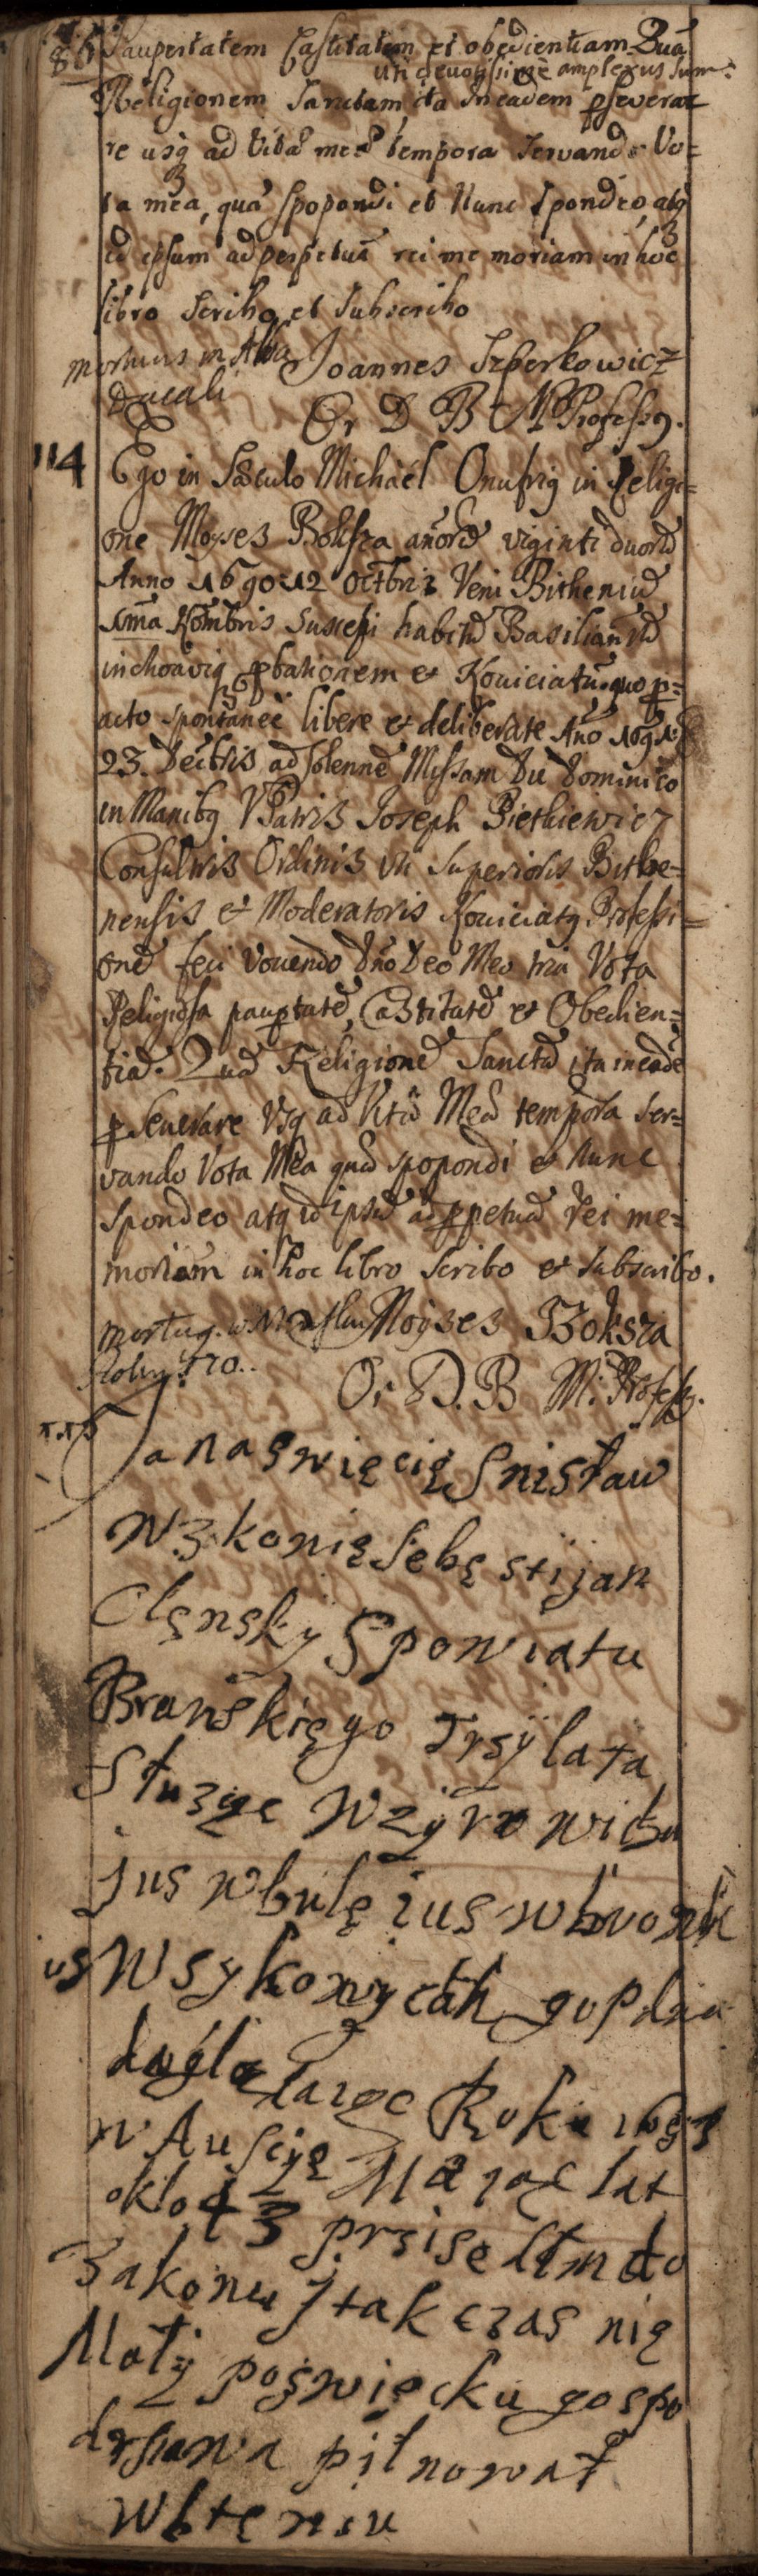 86 Paupertatem Castitatem et obedientiam Quã
uti devotissime amplexus sum
Religionem Sanctam, ita In eadem pseverar
re usq ad Vitæ meæ tempora servando Vo=
ta mea, quæ spopondi et Nunc spondeo, atq
id ipsum ad perpetuã rei memoriam in hoc
libro Scribo et Subscribo
mortuus in Alba Joannes Szperkowicz
Ducali
Or D B M Professq.
114 Ego in Sæculo Michaël Onufrig in Religi=
one Moyses Boksza añorũ viginti duorũ
Anno 1690 12 Octbris Veni Bitheniũ
1ma Nombris Suscepi habitũ Basilianũ
inchoaviq pbationem et Noviciatũ quo p=
acto spontaneè libere et deliberate Año 1691
23. Decbris ad solennẽ Missam Du Dominico
in Manibq VPatris Joseph Pietkiewicz
Consultris Ordinis Superioris Bithe=
nensis et Moderatoris Noviciatq Professi=
onẽ feci Vovendo Dño Deo Meo tria Vota
Religiosa pauptatẽ, Castitatẽ et Obedien=
tiã. Quã Religionẽ Sanctã ita in eadẽ
pseverare Vsq ad Vitæ Meæ tempora ser=
vando Vota Mea quæ spopondi et Nunc
spondeo atq id ipsũ ad ppetuã rei me=
moriam in hoc libro Scribo et subscribo.
mortuq. w Moyses Boksza
Or D. B M. Profess.
115 Ja naswięcię Snisław
Wzkonię Sebęstijan
Olęnsky Spowiatu
Branskięgo Trsÿ lata
Słuzÿc Wzÿrowicbu
Jus wbulę ius
us Wsykowycah
Roku 1691
Maiąc lat
okło 43 prsisęłłm do
Zakonu J tak czas nię
Małÿ poswięcku gospo
drsława pilnował
Wbtęniu